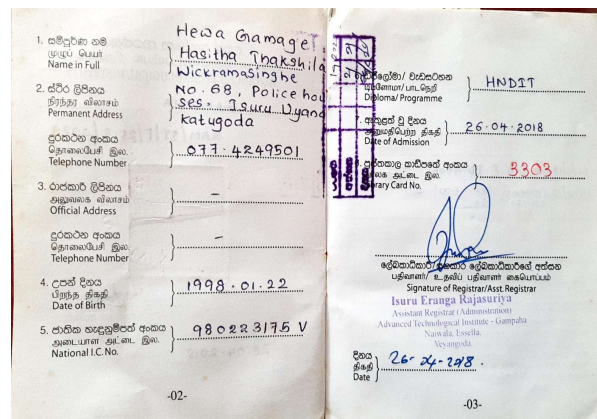 1. සම්පූර්ණ නම
முழுப் பெயர்
Name in Full
Hewa Gamage
Hasitha Thakshila
Wickramasinghe
2. ස්ථිර ලිපිනය
நிரந்தர விலாசம்
Permanent Address
No. 68, Police hou
ses. Isuru Uyana
Katugoda
දුරකථන අංකය
தொலைபேசி இல.
Telephone Number
077.4249501
3. රාජකාරි ලිපිනය
அலுவலக விலாசம்
Official Address
-
දුරකථන අංකය
தொலைபேசி இல.
Telephone Number
-
4. උපන් දිනය
பிறந்த திகதி
Date of Birth
1998.01.22
5. ජාතික හැඳුනුම්පත් අංකය
அடையாள அட்டை இல.
National I.C. No.
980223175 V
-02-
ඩිප්ලෝමා/ වැඩසටහන
டிப்ளோமா/ பாடநெறி
Diploma/ Programme
HNDIT
වූ දිනය
அனுமதிபெற்ற திகதி
Date of Admission
26.04.2018
පුස්තකාල කාඩ්පතේ අංකය
அட்டை இல.
Library Card No.
3303
ලේඛකාධිකාරි/ සහකාර ලේඛකාධිකාරිගේ අත්සන
பதிவாளர்/ உதவிப் பதிவாளர் கையொப்பம்
Signature of Registrar/Asst.Registrar
Isuru Eranga Rajasuriya
Assistant Registrar (Administration)
Advanced Technological Institute - Gampaha
Naiwala, Essella.
Veyangoda.
දිනය
திகதி
Date
26-04-2018.
-03-